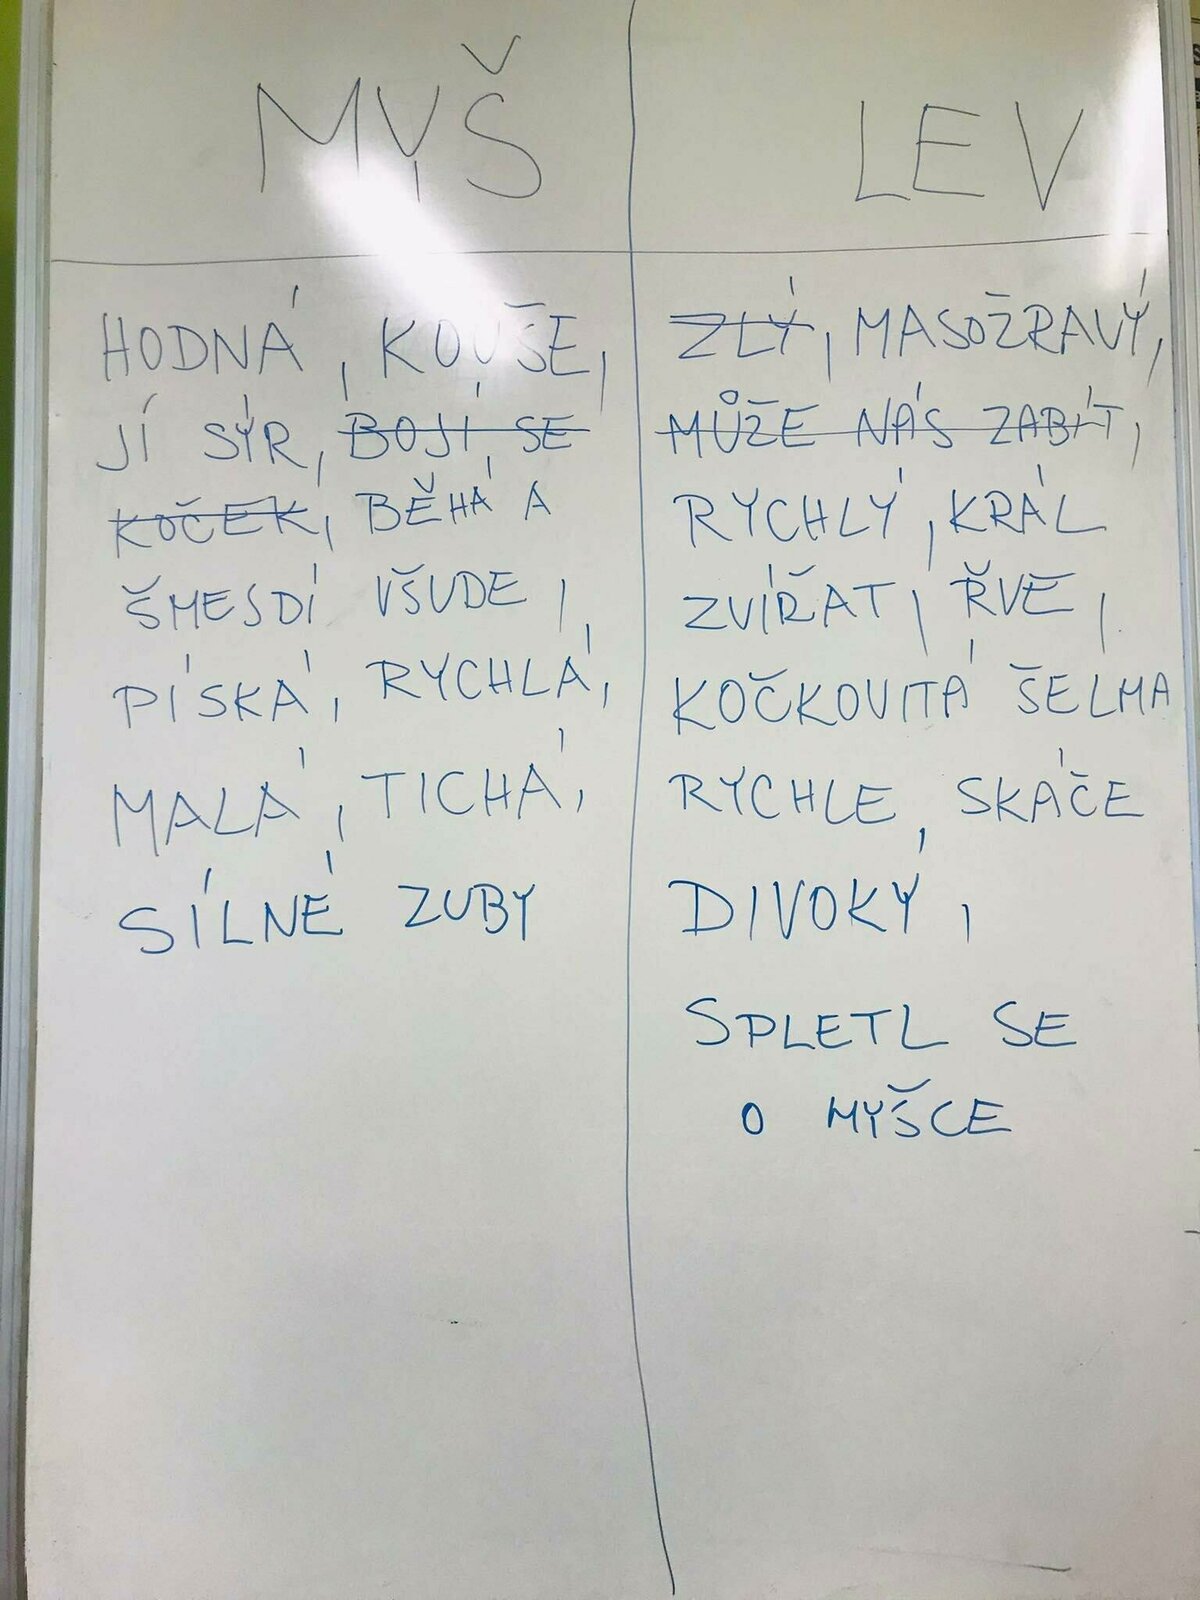 MYŠ
HODNÁ, KOUŠE,
JÍ SÝR, BOJÍ SE
KOČEK, BĚHÁ A
ŠMEJDÍ VŠUDE,
PÍSKÁ, RYCHLÁ,
MALÁ, TICHÁ,
SÍLNÉ ZUBY
LEV
ZLÝ, MASOŽRAVÝ,
MŮŽE NÁS ZABÍT,
RYCHLÝ, KRÁL
ZVÍŘAT, ŘVE,
KOČKOVITÁ ŠELMA
RYCHLE, SKÁČE
DIVOKÝ,
SPLETL SE
O MYŠCE